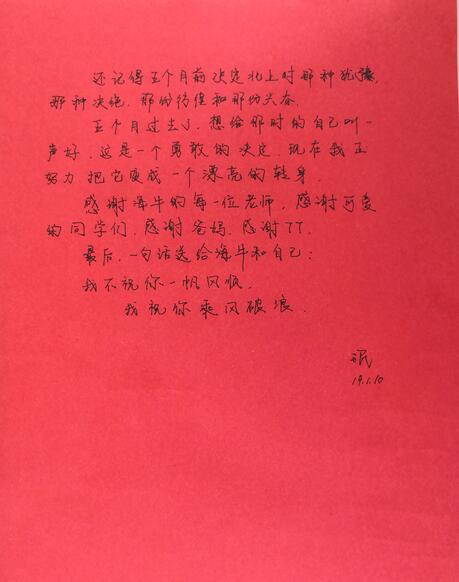 还记得五个月前决定北上时那种犹豫,
那种决绝。那份彷徨和那份兴奋.
五个月过去了.想给那时的自己叫一
声好.这是一个勇敢的决定.现在我正
努力把它变成一个漂亮的转身.
感谢海牛的每一位老师,感谢可爱
的同学们.感谢爸妈.感谢TT.
最后,一句话送给海牛和自己:
我不祝你一帆风顺.
我祝你乘风破浪.
19.1.10